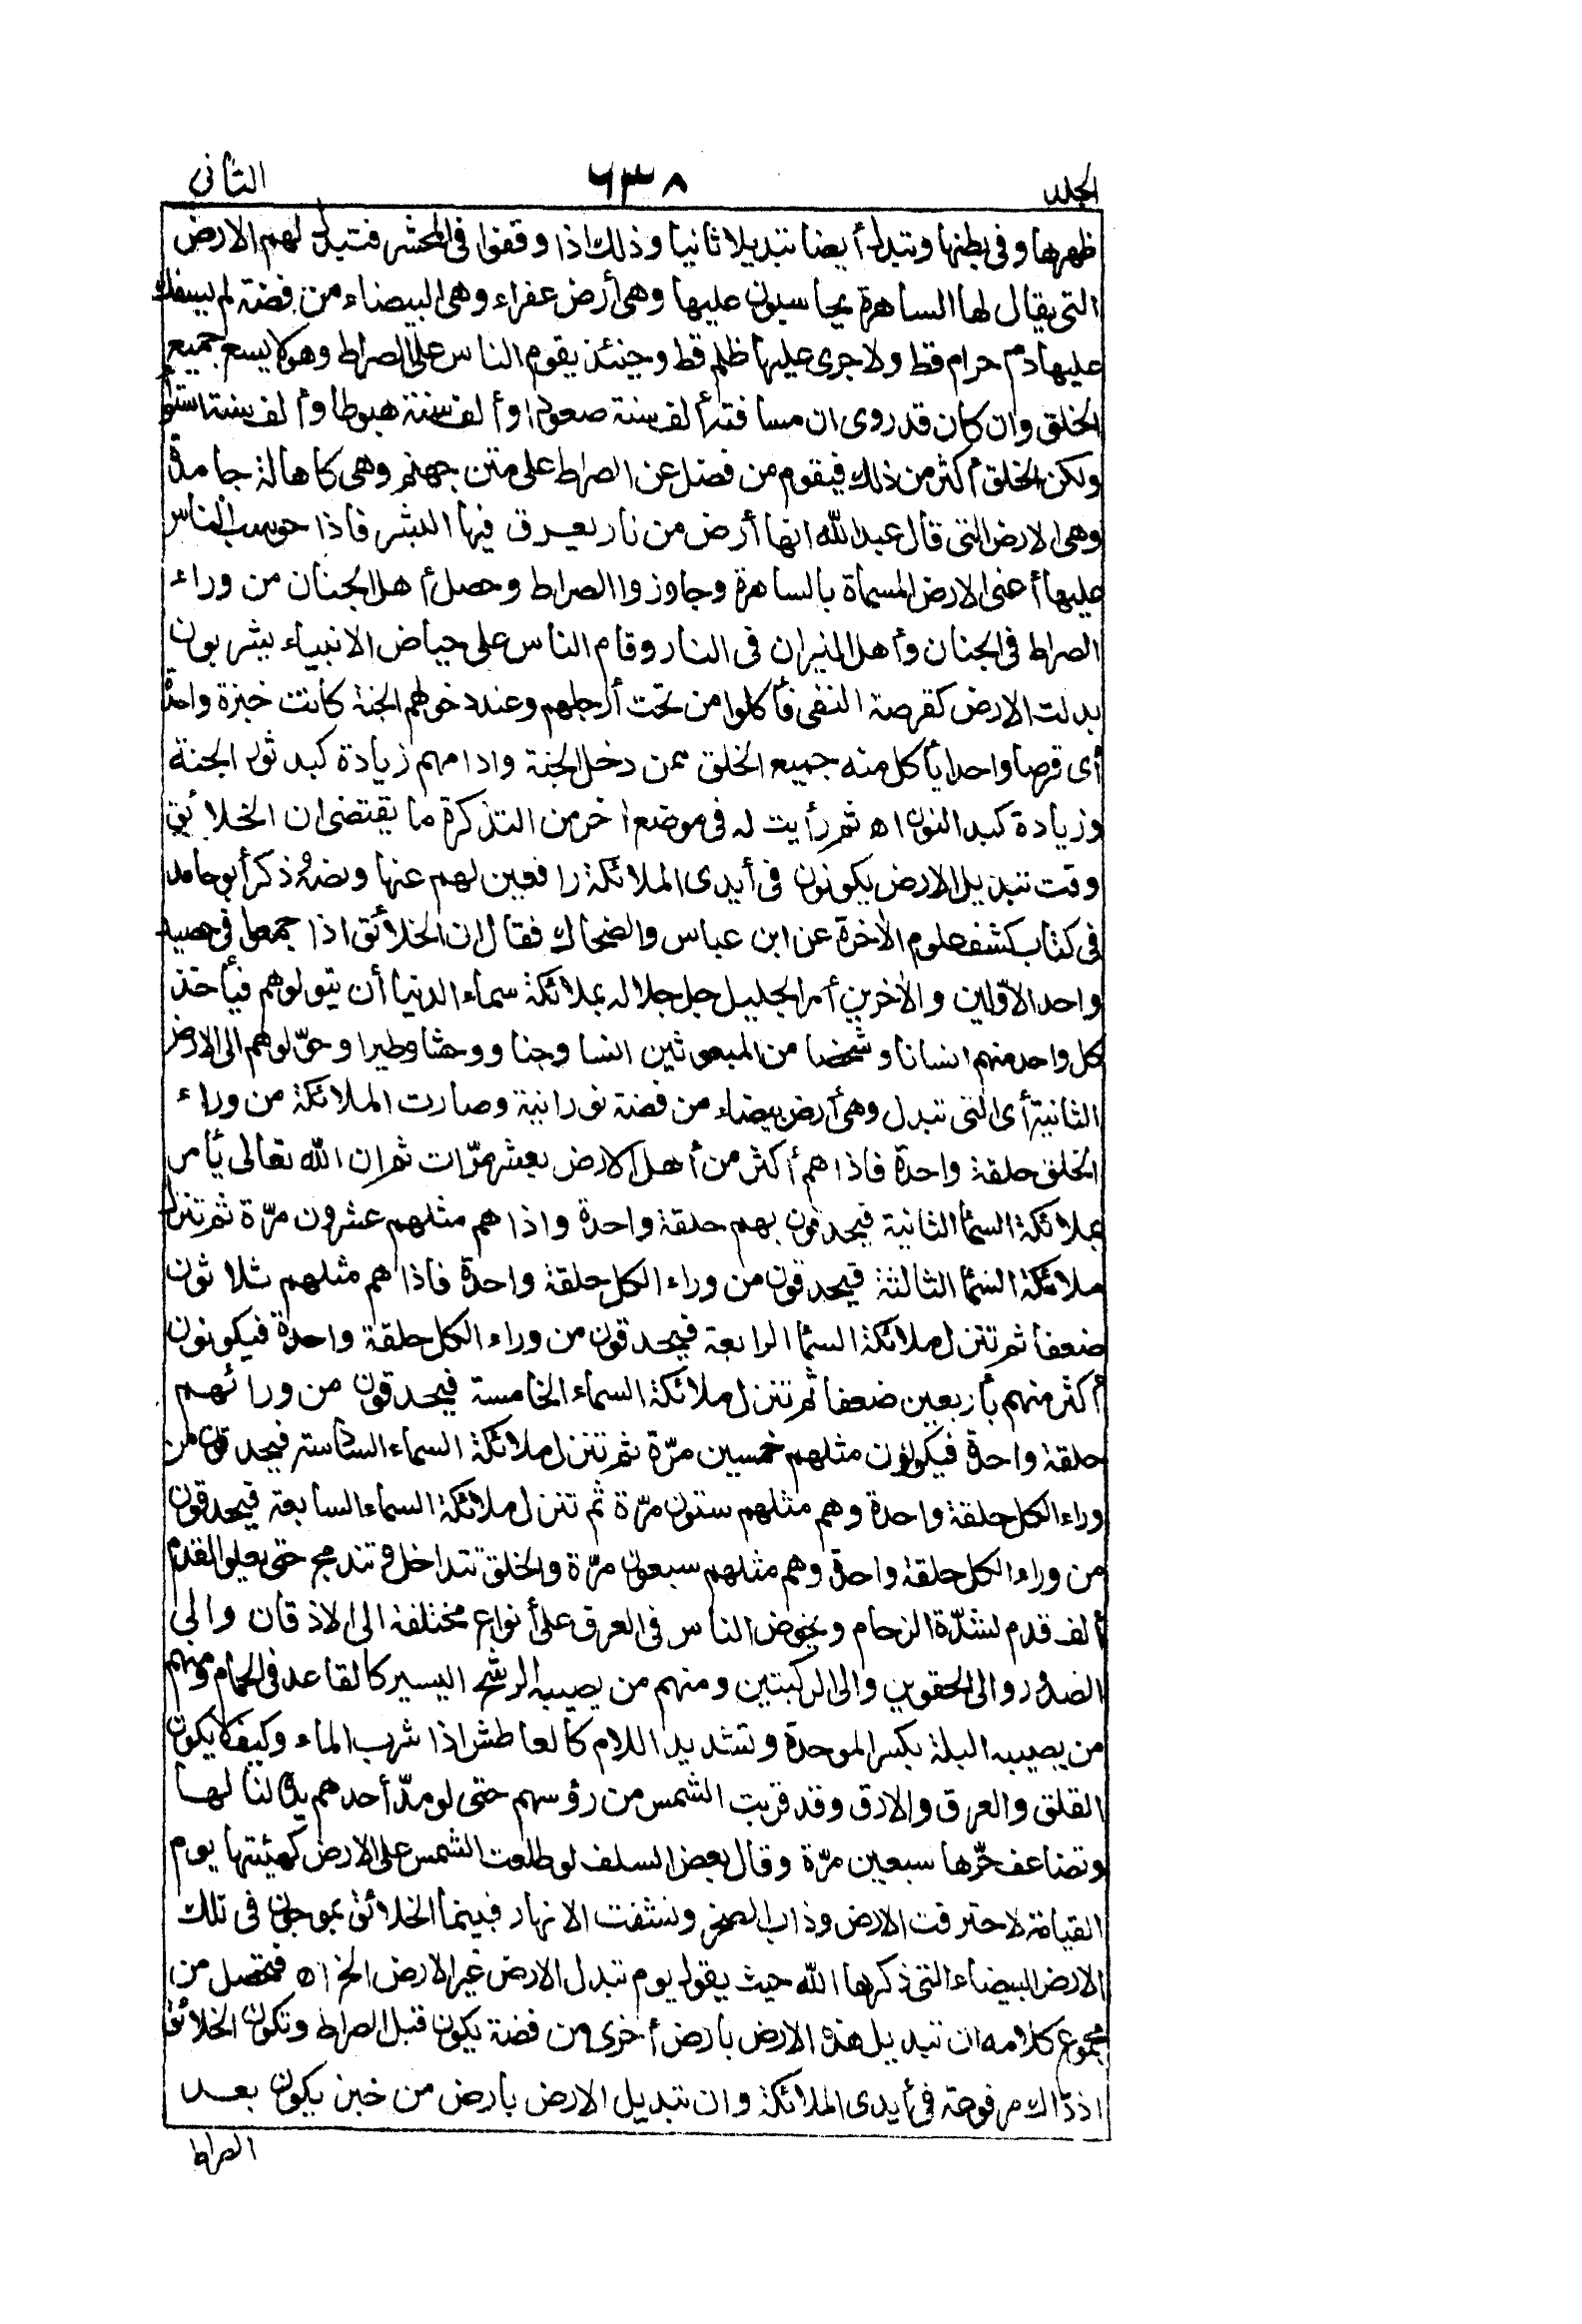 الجلد ٦٣٨ الثانى
ظهرها وفى بطنها وتبدل أيضا تبديلا ثانيا وذلك اذا وقفوا فى المحشر فتبدل لهم الارض
التى يقال لها الساهرة يحاسبون عليها وهى أرض عفراء وهى البيضاء من فضة لم يسفك
عليها دم حرام قط ولا جرى عليها ظلم قط وحينئذ يقوم الناس على الصراط وهو لا يسع جميع
الخلق وان كان قد روى ان مسافته ألف سنة صعودا وألف سنة هبوطا وألف سنة استوا
ولكن الخلق أكثر من ذلك فيقوم من فضل عن الصراط على متن جهنم وهى كاهالة جامدة
وهى الارض التى قال عبد الله انها أرض من نار يعرق فيها البشر فاذا حوسب الناس
عليها أعنى الارض المسماة بالساهرة وجاوزوا الصراط وحصل أهل الجنان من وراء
الصراط فى الجنان وأهل النيران فى النار وقام الناس على حياض الانبياء يشربون
بدلت الارض كقرصة النقى فأكلوا من تحت أرجلهم وعند دخولهم الجنة كانت خبزة واحدة
أى قرصا واحدا يأكل منه جميع الخلق ممن دخل الجنة وادامهم زيادة كبد ثور الجنة
وزيادة كبد النون اه ثم رأيت له فى موضع اخر من التذكرة ما يقتضى ان الخلائق
وقت تبديل الارض يكونون فى أيدى الملائكة رافعين لهم عنها ونصه ذكر أبو حامد
فى كتاب كشف علوم الآخرة عن ابن عباس والضحاك فقال ان الخلائق اذا جمعوا فى صعيد
واحد الاولين والآخرين أمر الجليل جل جلاله بملائكة سماء الدنيا أن يتولوهم فيأخذ
كل واحد منهم انسانا وشخصا من المبعوثين انسا وجنا ووحشا وطيرا وحوّلوهم الى الارض
الثانية أى التى تبدل وهى أرض بيضاء من فضة نورانية وصارت الملائكة من وراء
الخلق حلقة واحدة فاذا هم أكثر من أهل الارض بعشر مرّات ثم ان الله تعالى يأمر
بملائكة السماء الثانية فيحدقون بهم حلقة واحدة واذا هم مثلهم عشرون مرّة ثم تنزل
ملائكة السماء الثالثة فيحدقون من وراء الكل حلقة واحدة فاذا هم مثلهم ثلاثون
ضعفا ثم تنزل ملائكة السماء الرابعة فيحدقون من وراء الكل حلقة واحدة فيكونون
أكثر منهم بأربعين ضعفا ثم تنزل ملائكة السماء الخامسة فيحدقون من ورائهم
حلقة واحدة فيكونون مثلهم خمسين مرّة ثم تنزل ملائكة السماء السادسة فيحدقون من
وراء الكل حلقة واحدة وهم مثلهم ستون مرّة ثم تنزل ملائكة السماء السابعة فيحدقون
من وراء الكل حلقة واحدة وهم مثلهم سبعون مرّة والخلق تتداخل وتندمج حتى يعلو القدم
ألف قدم لشدّة الزحام ويخوض الناس فى العرق على أنواع مختلفة الى الاذقان والى
الصدور والى الحقوين والى الركبتين ومنهم من يصيبه الرشح اليسير كالقاعد فى الحمام ومنهم
من يصيبه البلة بكسر الموحدة وتشديد اللام كالعاطش اذا شرب الماء وكيف لا يكون
القلق والعرق والارق وقد قربت الشمس من رؤسهم حتى لو مدّ أحدهم يده لنالها
وتضاعف حرّها سبعين مرّة وقال بعض السلف لو طلعت الشمس على الارض كهيئتها يوم
القيامة لاحترقت الارض وذاب الصخر ونشفت الانهار فبينما الخلائق يموجون فى تلك
الارض البيضاء التى ذكرها الله حيث يقول يوم تبدل الارض غير الارض الخ اه فتحصل من
مجموع كلامه ان تبديل هذه الارض بارض أخرى من فضة يكون قبل الصراط وتكون الخلائق
اذ ذاك مرفوعة فى أيدى الملائكة وان تبديل الارض بارض من خبز يكون بعد
الصراط